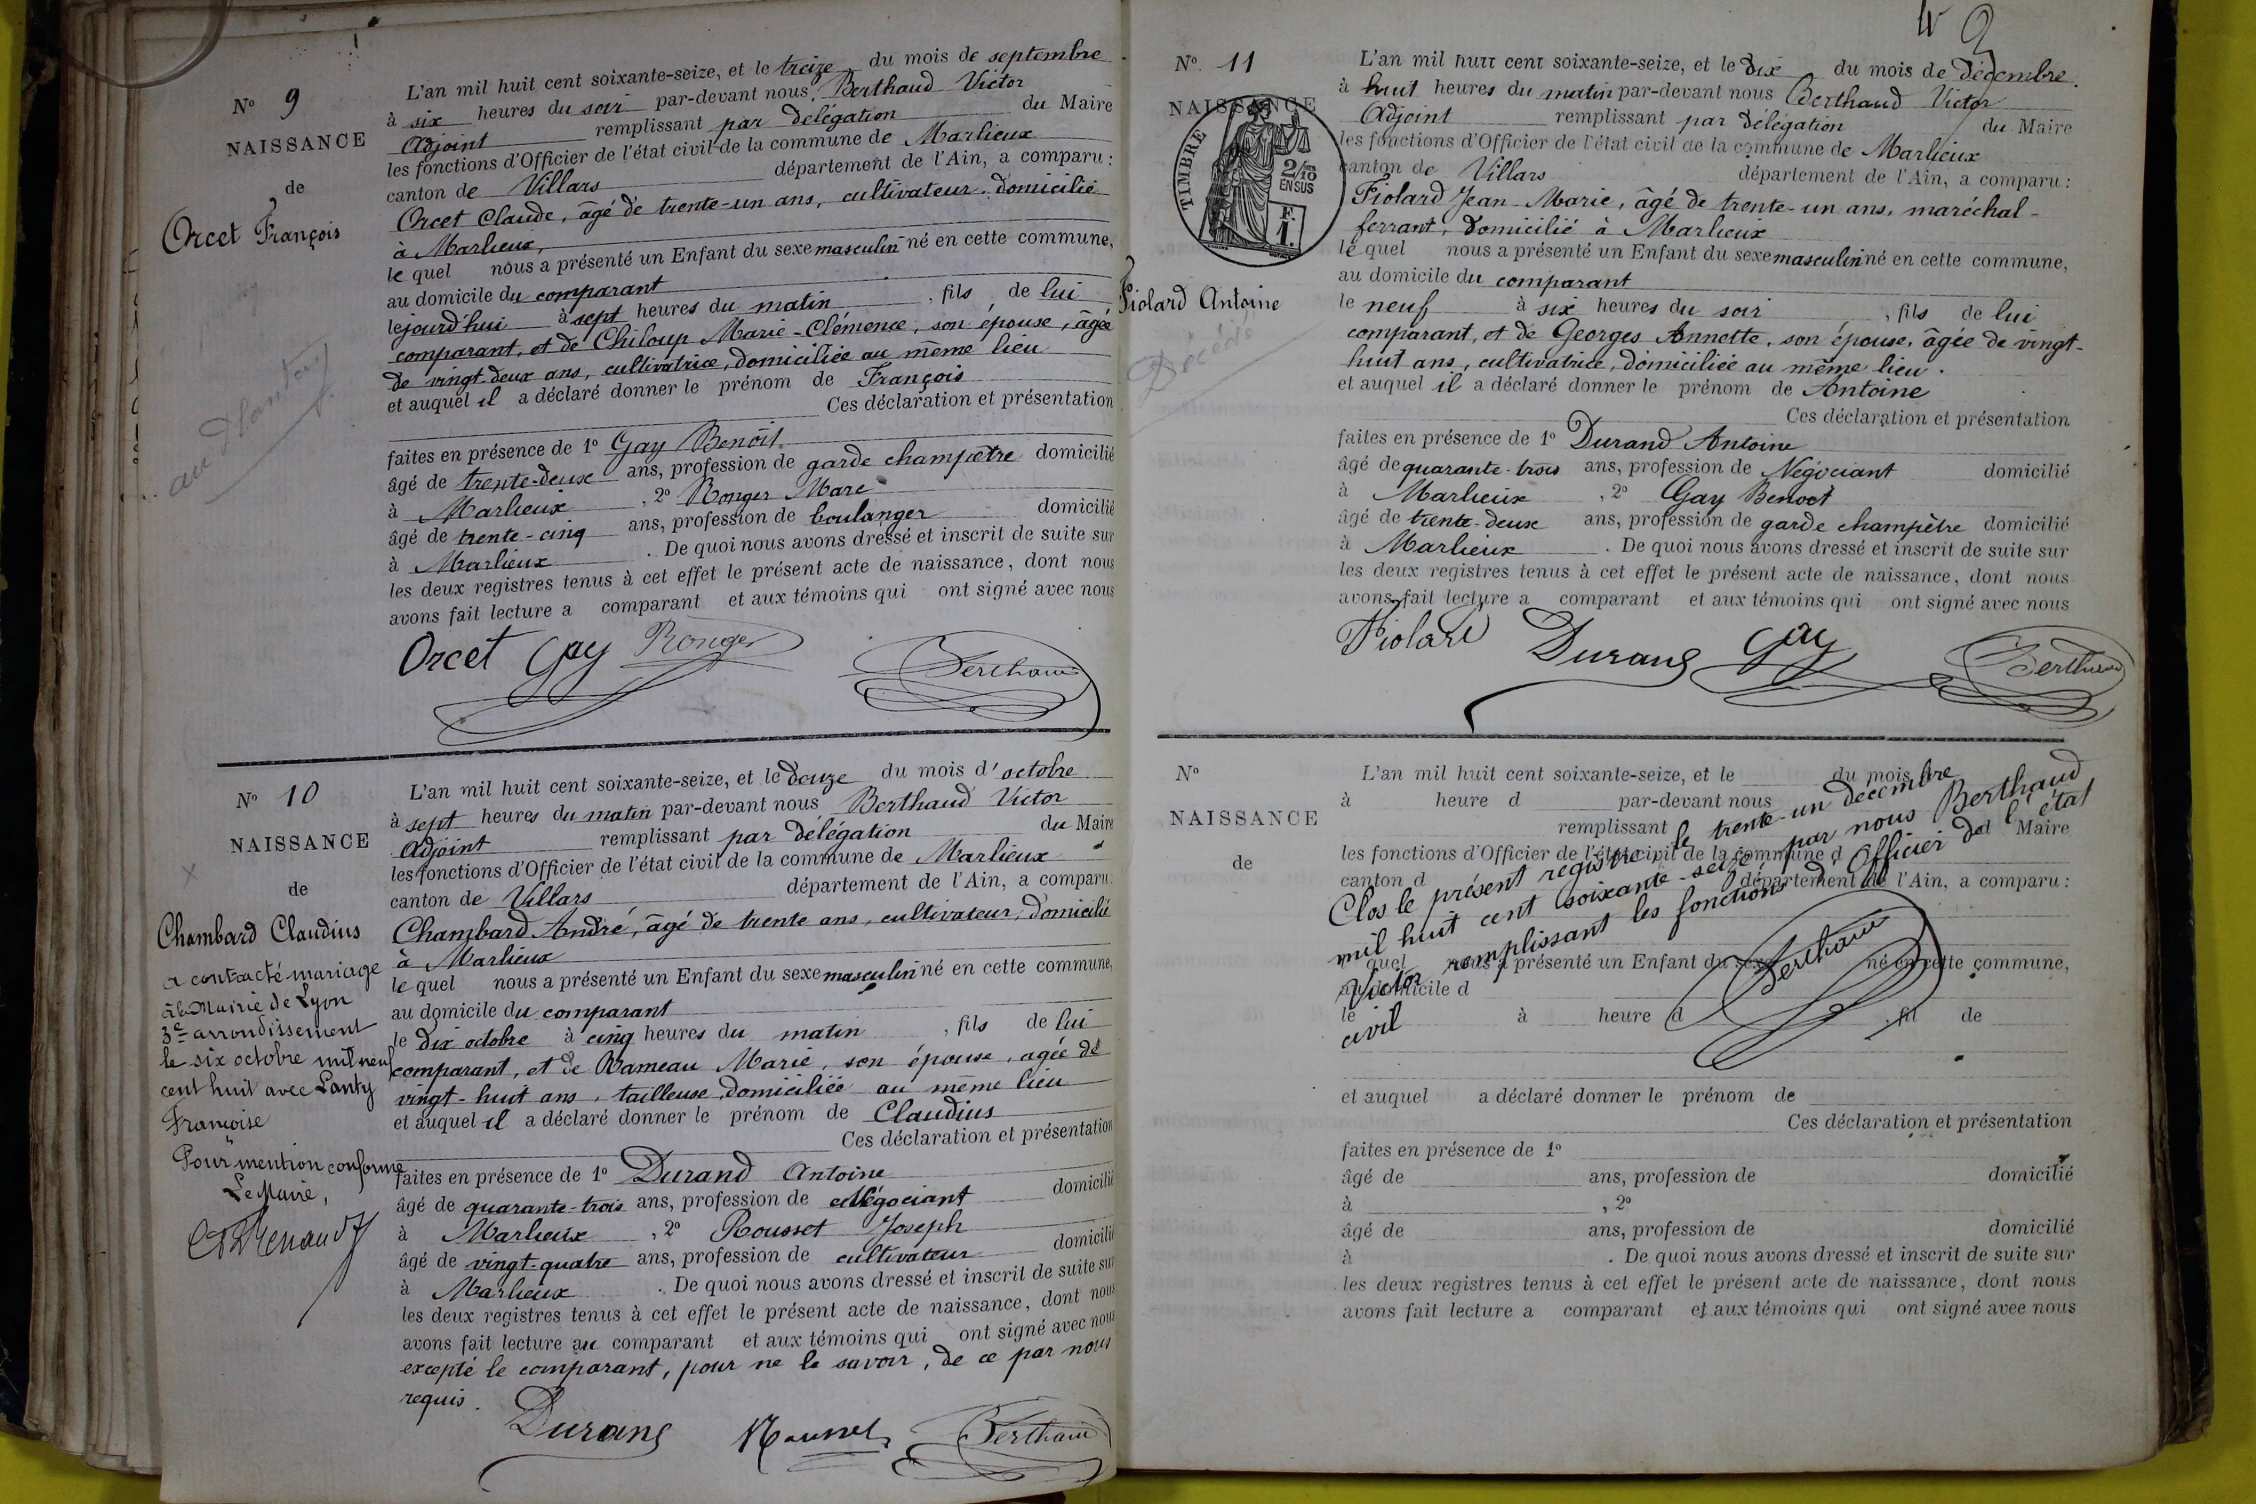 N° 9
NAISSANCE
de
Orcet François
L'an mil huit cent soixante-seize, et le treize du mois de septembre
à six heures du soir par-devant nous Berthaud Victor
Adjoint remplissant par délégation du Maire
les fonctions d'Officier de l'état civil de la commune de Marlieux
canton de Villars département de l'Ain, a comparu :
Orcet Claude, âgé de trente-un ans, cultivateur, domicilié
à Marlieux,
le quel nous a présenté un Enfant du sexe masculin né en cette commune,
au domicile du comparant
le jourd'hui à sept heures du matin, fils de lui
comparant, et de Chiloup Marie-Clémence, son épouse, âgée
de vingt-deux ans, cultivatrice, domiciliée au même lieu
et auquel il a déclaré donner le prénom de François
Ces déclaration et présentation
faites en présence de 1° Gay Benoît
âgé de trente-deux ans, profession de garde champêtre domicilié
à Marlieux, 2° Ronger Marc
âgé de trente-cinq ans, profession de boulanger domicilié
à Marlieux. De quoi nous avons dressé et inscrit de suite sur
les deux registres tenus à cet effet le présent acte de naissance, dont nous
avons fait lecture a comparant et aux témoins qui ont signé avec nous
Orcet Gay Ronger Berthaud
N° 10
NAISSANCE
de
Chambard Claudius
a contracté mariage
à la Mairie de Lyon
3e arrondissement
le six octobre mil neuf
cent huit avec Lanty
Françoise
Pour mention conforme
Le Maire,
L'an mil huit cent soixante-seize, et le douze du mois d'octobre
à sept heures du matin par-devant nous Berthaud Victor
Adjoint remplissant par délégation du Maire
les fonctions d'Officier de l'état civil de la commune de Marlieux
canton de Villars département de l'Ain, a comparu.
Chambard André, âgé de trente ans, cultivateur, domicilié
à Marlieux
le quel nous a présenté un Enfant du sexe masculin né en cette commune,
au domicile du comparant
le dix octobre à cinq heures du matin, fils de lui
comparant, et de Rameau Marie, son épouse, agée de
vingt-huit ans, tailleuse, domiciliée au même lieu
et auquel il a déclaré donner le prénom de Claudius
Ces déclaration et présentation
faites en présence de 1° Durand Antoine
âgé de quarante-trois ans, profession de Négociant domicilié
à Marlieux, 2° Rousset Joseph
âgé de vingt-quatre ans, profession de cultivateur domicilié
à Marlieux. De quoi nous avons dressé et inscrit de suite sur
les deux registres tenus à cet effet le présent acte de naissance, dont nous
avons fait lecture au comparant et aux témoins qui ont signé avec nous
excepté le comparant, pour ne le savoir, de ce par nous
requis.
Durand Rousset Berthaud
N° 11
NAISSANCE
TIMBRE
2/10
EN SUS
F.
1.
Fiolard Antoine
Décédé
L'an mil huit cent soixante-seize, et le dix du mois de décembre.
à huit heures du matin par-devant nous Berthaud Victor
Adjoint remplissant par délégation du Maire
les fonctions d'Officier de l'état civil de la commune de Marlieux
canton de Villars département de l'Ain, a comparu :
Fiolard Jean-Marie, âgé de trente-un ans, maréchal-
ferrant, domicilié à Marlieux
le quel nous a présenté un Enfant du sexe masculin né en cette commune,
au domicile du comparant
le neuf à six heures du soir, fils de lui
comparant, et de Georges Annette, son épouse, âgée de vingt-
huit ans, cultivatrice, domiciliée au même lieu.
et auquel il a déclaré donner le prénom de Antoine
Ces déclaration et présentation
faites en présence de 1° Durand Antoine
âgé de quarante-trois ans, profession de Négociant domicilié
à Marlieux, 2° Gay Benoit
âgé de trente-deux ans, profession de garde champêtre domicilié
à Marlieux. De quoi nous avons dressé et inscrit de suite sur
les deux registres tenus à cet effet le présent acte de naissance, dont nous
avons fait lecture a comparant et aux témoins qui ont signé avec nous
Fiolard Durand Gay Berthaud
N°
NAISSANCE
de
L'an mil huit cent soixante-seize, et le du mois
à heure d par-devant nous
remplissant d Maire
les fonctions d'Officier de l'état civil de la commune d
canton d département de l'Ain, a comparu :
Clos le présent registre le trente-un décembre
mil huit cent soixante-seize par nous Berthaud
Victor remplissant les fonctions d'Officier de l'état
civil
Berthaud
quel nous a présenté un Enfant du sexe né en cette commune,
au domicile d
le à heure d, fil de
et auquel a déclaré donner le prénom de
Ces déclaration et présentation
faites en présence de 1°
âgé de ans, profession de domicilié
à , 2°
âgé de ans, profession de domicilié
à . De quoi nous avons dressé et inscrit de suite sur
les deux registres tenus à cet effet le présent acte de naissance, dont nous
avons fait lecture a comparant et aux témoins qui ont signé avec nous